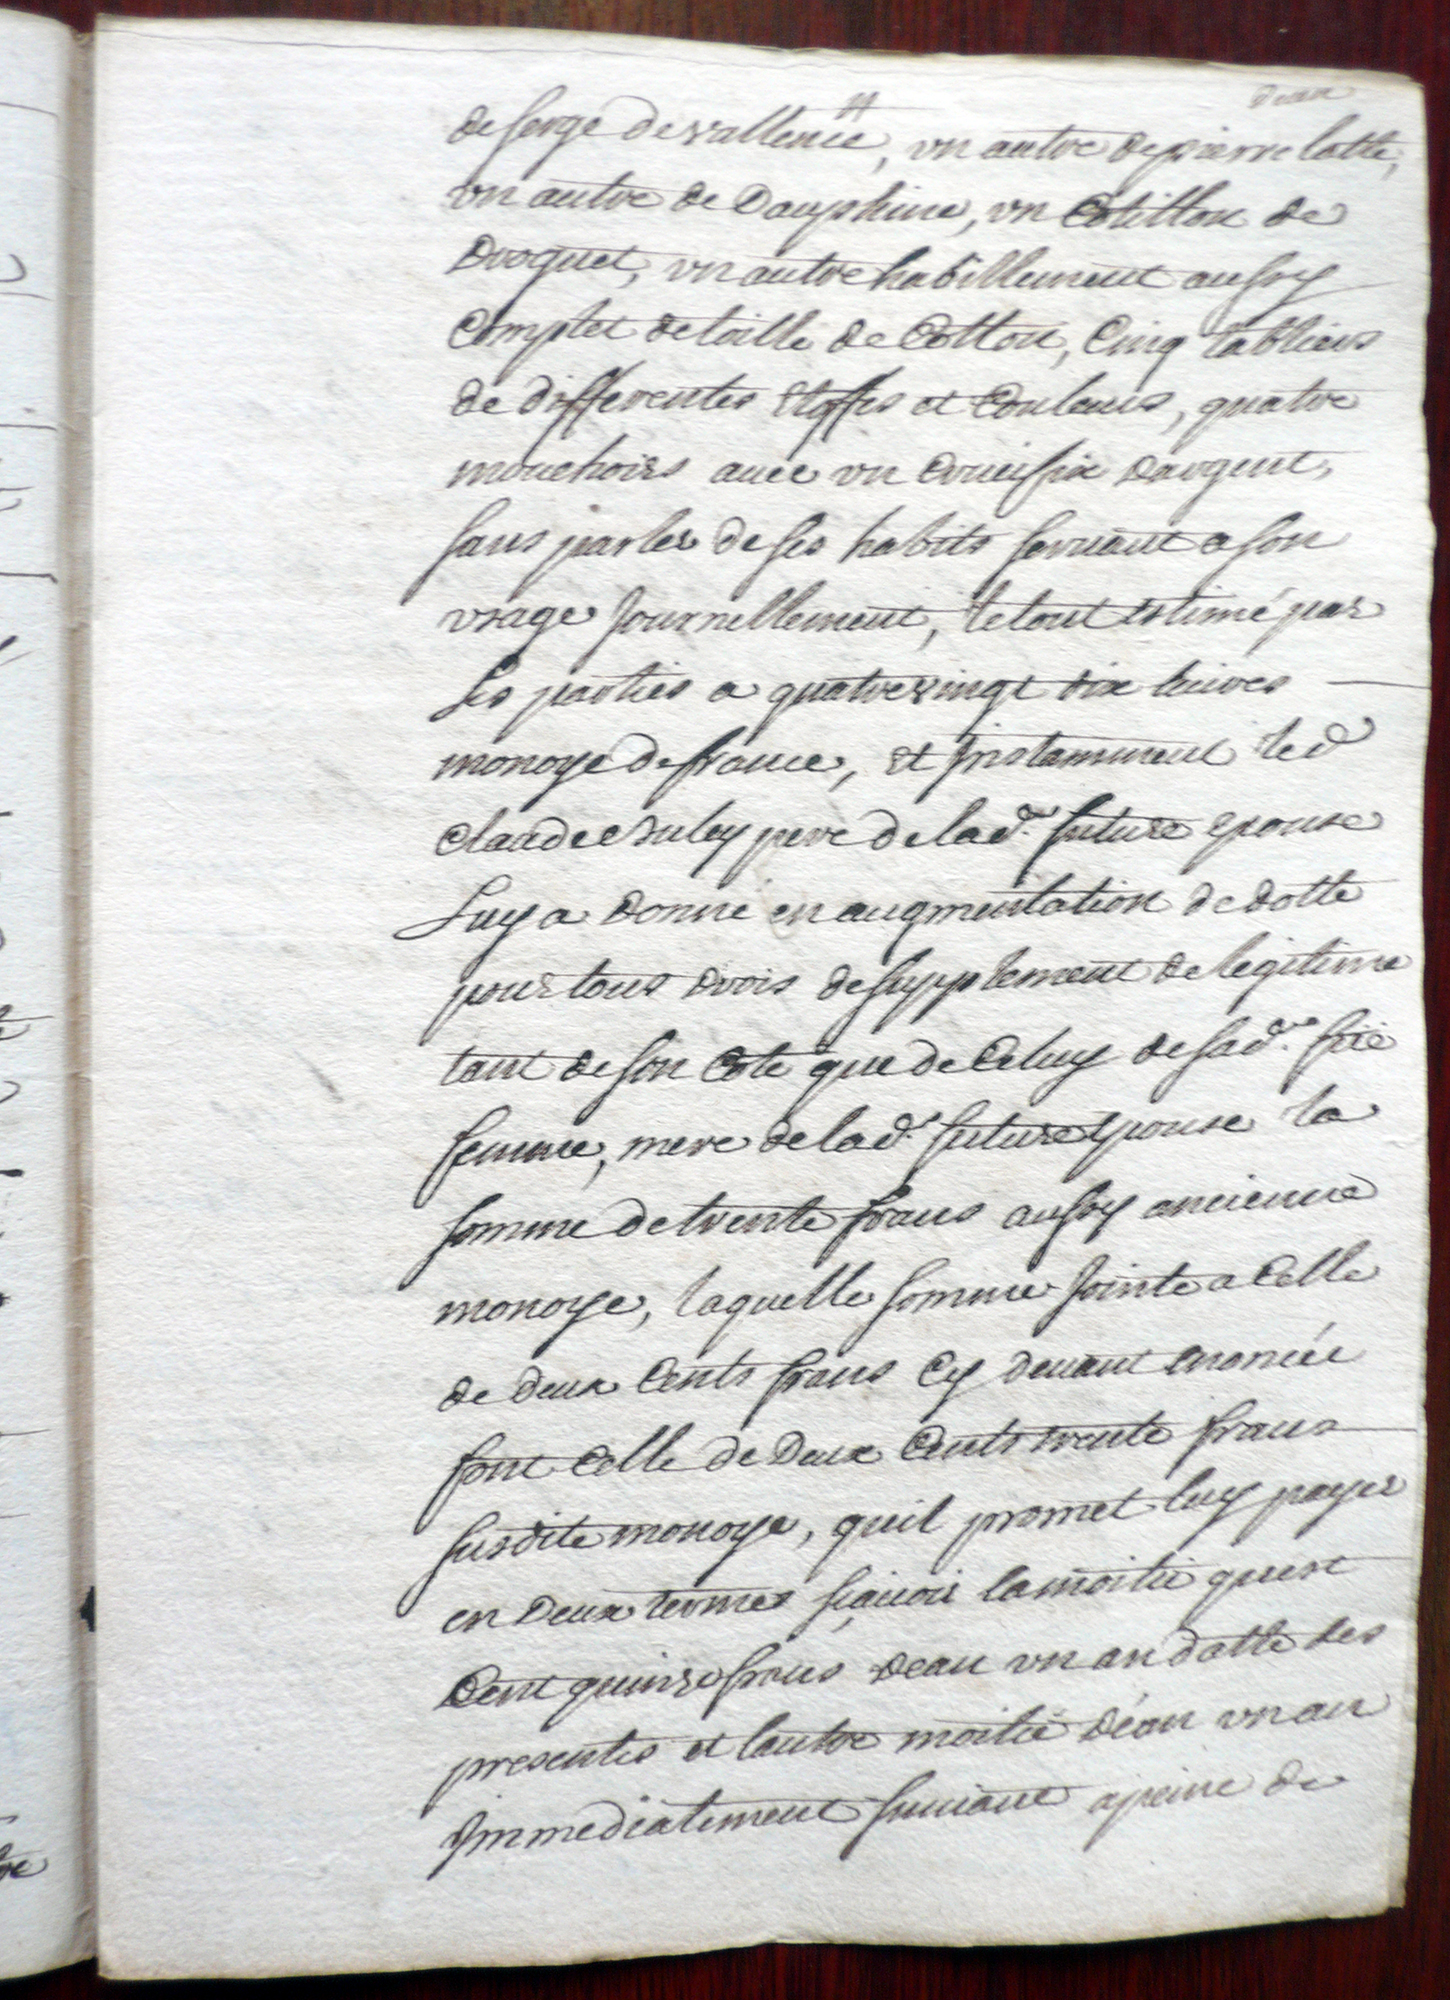 deux
de serge de vallence, vn autre de pierre latte,
vn autre de Dauphine, vn Cotillon de
Droguet, vn autre habillement aussy
Complet de toille de Cotton, Cinq tabliers
de differentes etoffes et Couleurs, quatre
mouchoirs auec vn Crucifix dargent,
sans parler de ses habits seruant a son
vsage Journellement, le tout estimé par
Les parties a quatre vingt dix liures
monoye de france, et Jnstamment led
Claude pere de lad.e future epouse
Luy a donné en augmentation de dotte
pour tous drois de supplement de legitime
tant de son Coté que de Celuy de sad.e
femme, mere de lad.e future epouse la
somme de trente frans aussy ancienne
monoye, laquelle somme Jointe a Celle
de deux Cents frans Cy deuant enoncée
font Celle de Deux Cents trente frans
susdite monoye, quil promet luy payer
en Deux termes sçauoir la moitié quest
Cent quinze frans dean vn an datte des
presentes et lautre moitié déan vn an
Jmmediatement suiuant apeine de